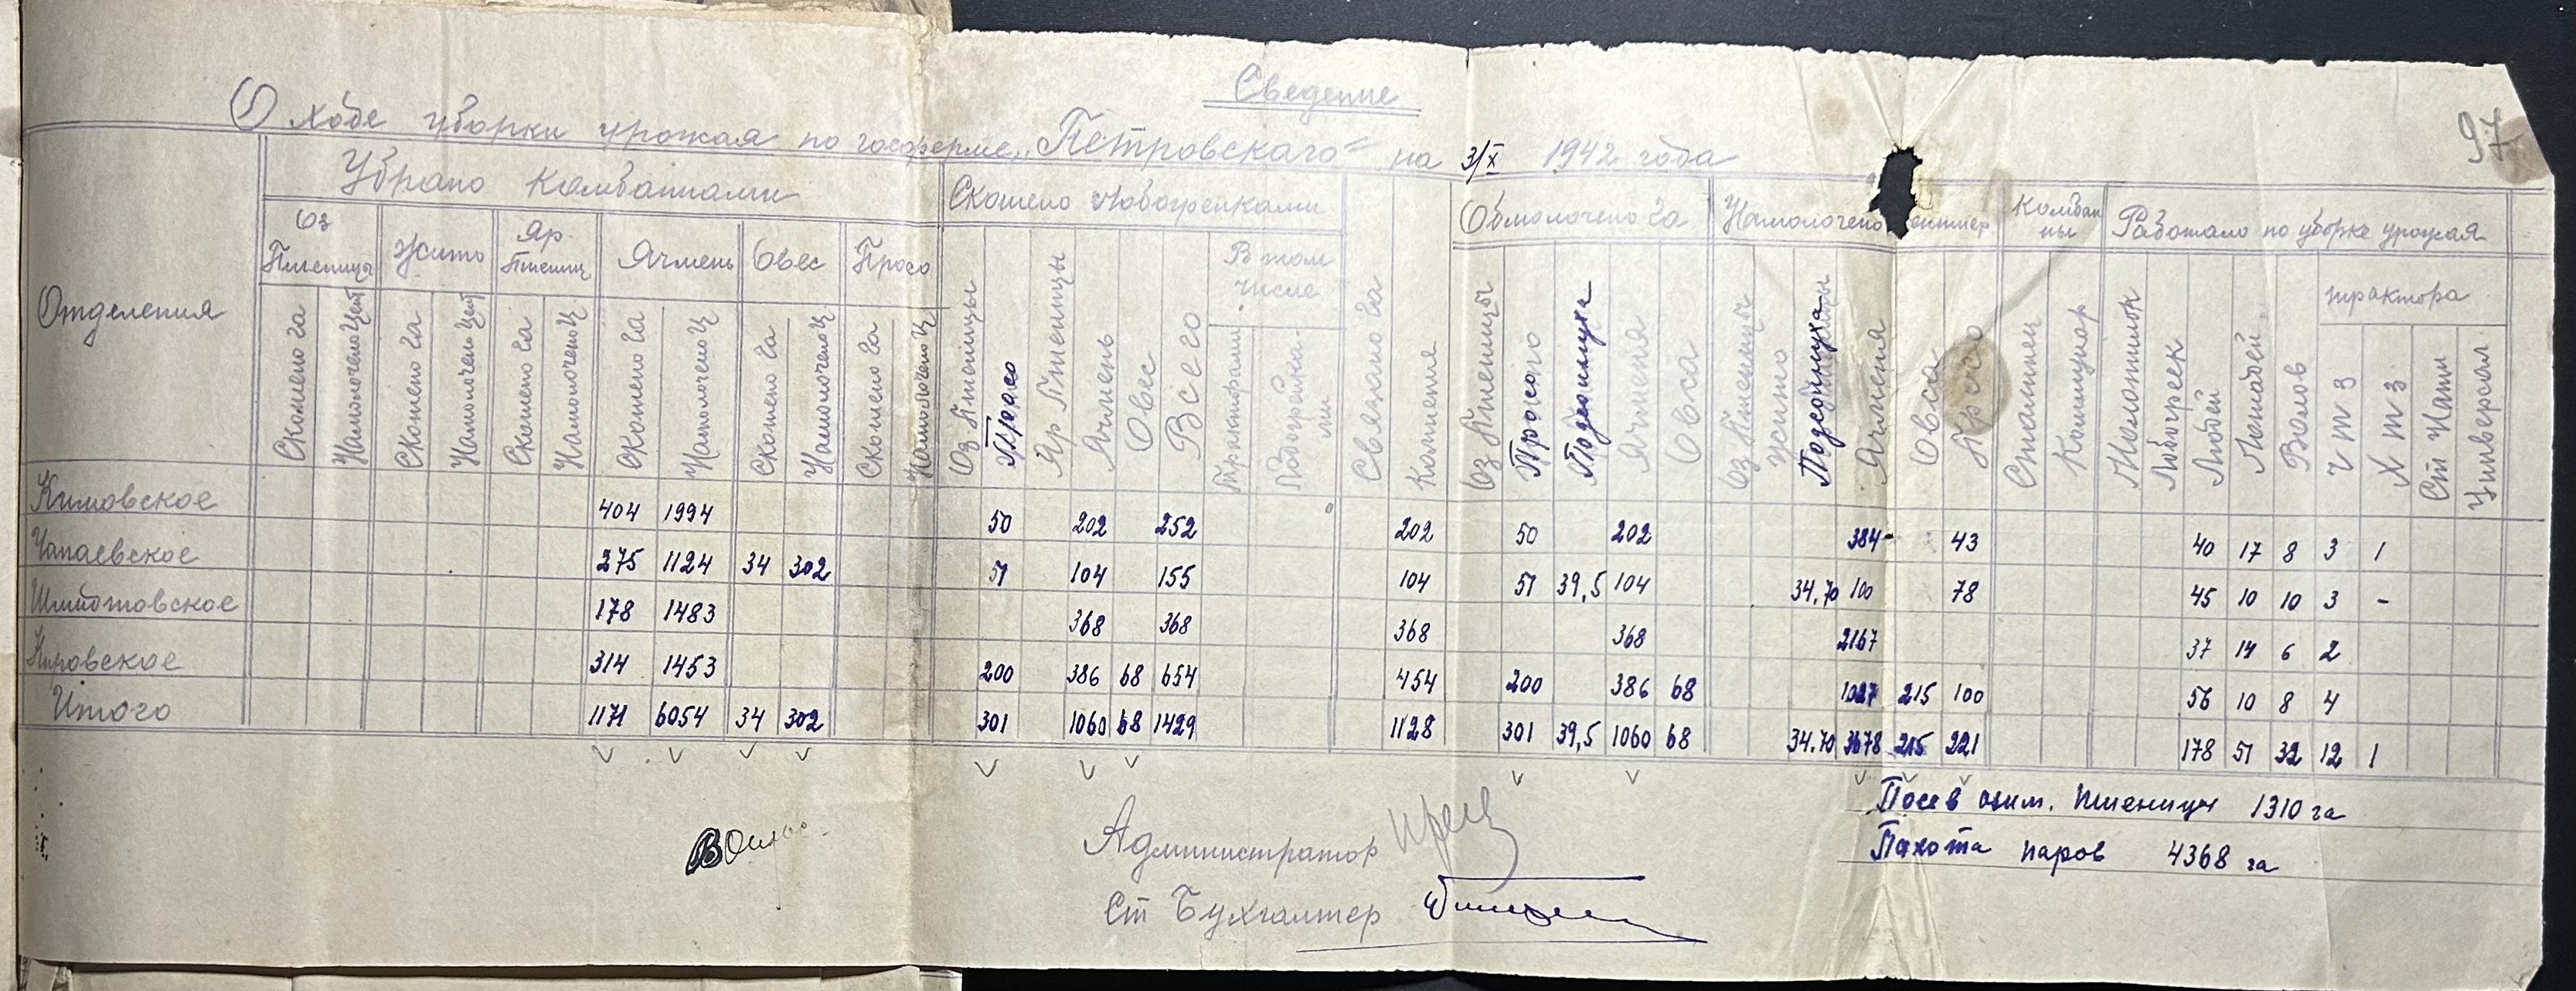 97
Сведение
О ходе уборки урожая по госферме „Петровскаго“ на 3/X 1942 года
Отделения
Убрано комбайнами
Скошено лобогрейками
Обмолочено Га
Намолочено
Комбайны
Работало по уборке урожая
Оз Пшеницы
Жито
Яр. Пшениц
Ячмень
Овес
Просо
В том числе
трактора
Скошено га
Намолочен Цент
Скошено Га
Намолочен Цент
Скошено Га
Намолочено Ц
Скошено Га
Намолочено Ц
Скошено Га
Намолочено Ц
Скошено Га
Намолочено Ц
Оз Пшеницы
Просо
Яр Пшеницы
Ячмень
Овес
Всего
Тракторами
Лобогрейками
Связано Га
Оз Пшеницы
Просого
Подсолнуха
Ячменя
Овса
Оз Пшеницы
Жито
Подсолнуха
Ячменя
Овса
Просо
Сталинец
Коммунар
Молотилок
Лобогреек
Людей
Лошадей
Валов
ЧТЗ
ХТЗ
Ст Нати
Универсал.
Кимовское 404 1994 50 202 252 202 50 202 384 43 40 17 8 3 1
Чапаевское 275 1124 34 302 51 104 155 104 51 39,5 104 34,70 100 78 45 10 10 3 -
Шмидтовское 178 1483 368 368 368 368 2167 37 14 6 2
Кировское 314 1453 200 386 68 654 454 200 386 68 1027 215 100 56 10 8 4
Итого 1171 6054 34 302 301 1060 68 1429 1128 301 39,5 1060 68 34.70 3678 215 221 178 51 32 12 1
Посев озим. пшеницы 1310 га
Пахота паров 4368 га
Администратор
Ст Бухгалтер